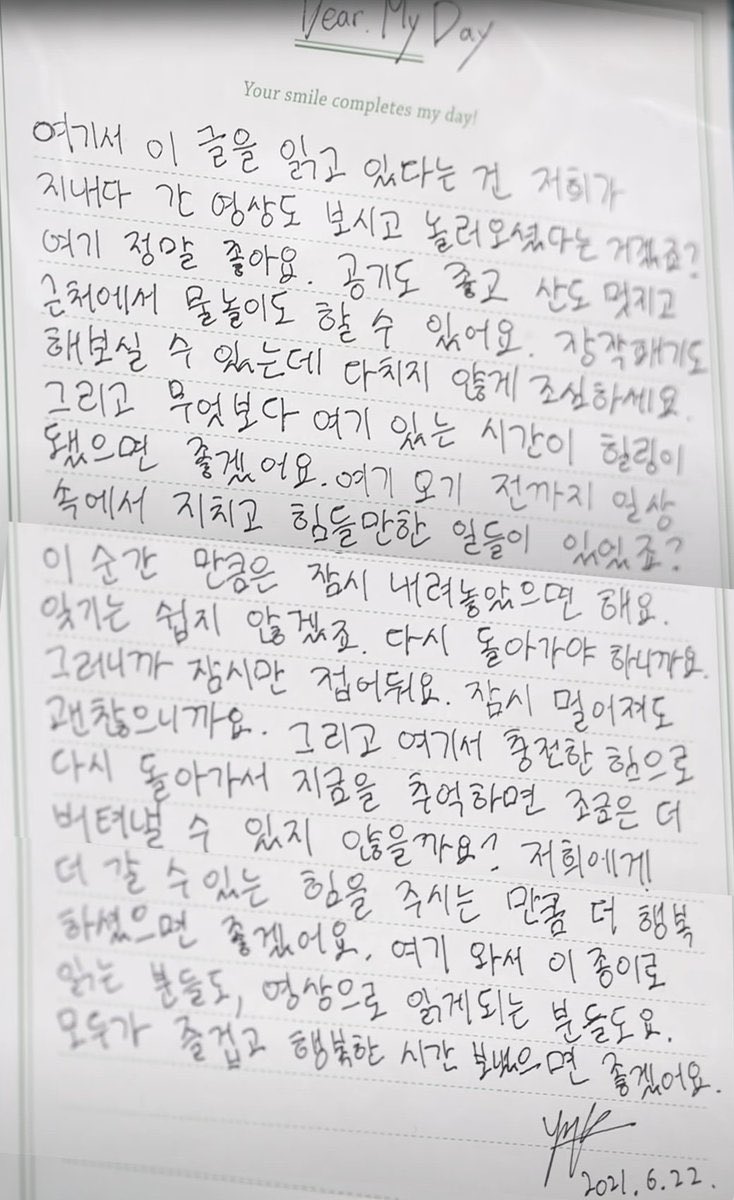 Dear. My Day
Your smile completes my day!
여기서 이 글을 읽고 있다는 건 저희가
지내다 간 영상도 보시고 놀러오셨다는 거겠죠?
여기 정말 좋아요. 공기도 좋고 산도 멋지고
근처에서 물놀이도 할 수 있어요. 장작패기도
해보실 수 있는데 다치지 않게 조심하세요.
그리고 무엇보다 여기 있는 시간이 힐링이
됐으면 좋겠어요. 여기 오기 전까지 일상
속에서 지치고 힘들만한 일들이 있었죠?
이 순간 만큼은 잠시 내려놓았으면 해요.
잊기는 쉽지 않겠죠. 다시 돌아가야 하니까요.
그러니까 잠시만 접어둬요. 잠시 멀어져도
괜찮으니까요. 그리고 여기서 충전한 힘으로
다시 돌아가서 지금을 추억하면 조금은 더
버텨낼 수 있지 않을까요? 저희에게
더 갈 수 있는 힘을 주시는 만큼 더 행복
하셨으면 좋겠어요. 여기 와서 이 종이로
읽는 분들도, 영상으로 읽게되는 분들도요.
모두가 즐겁고 행복한 시간 보냈으면 좋겠어요.
2021.6.22.